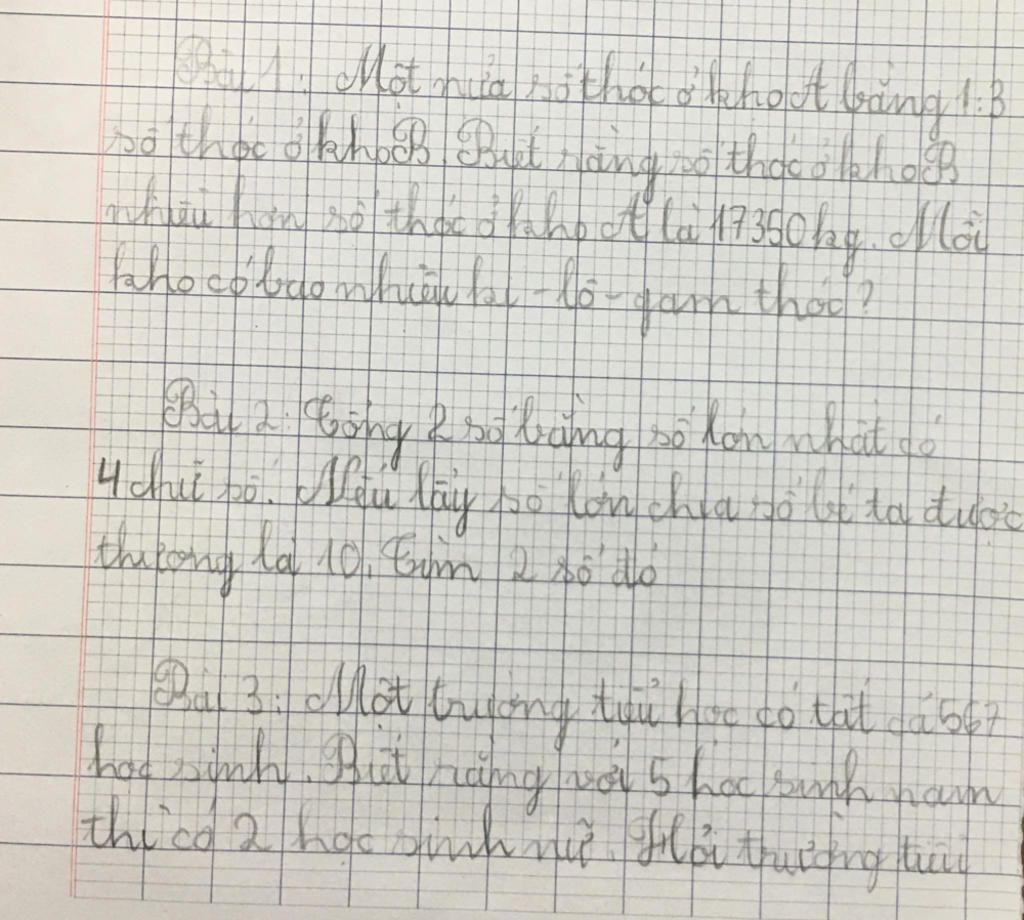 Bài 1: Một nửa số thóc ở kho A bằng 1:3
số thóc ở kho B. Biết rằng số thóc ở kho B
nhiều hơn số thóc ở kho A là 17350kg. Mỗi
kho có bao nhiêu ki-lô-gam thóc?
Bài 2: Tổng 2 số bằng số lớn nhất có
4 chữ số. Nếu lấy số lớn chia số bé ta được
thương là 10. Tìm 2 số đó
Bài 3: Một trường tiểu học có tất cả 567
học sinh. Biết rằng với 5 học sinh nam
thì có 2 học sinh nữ. Hỏi trường tiểu